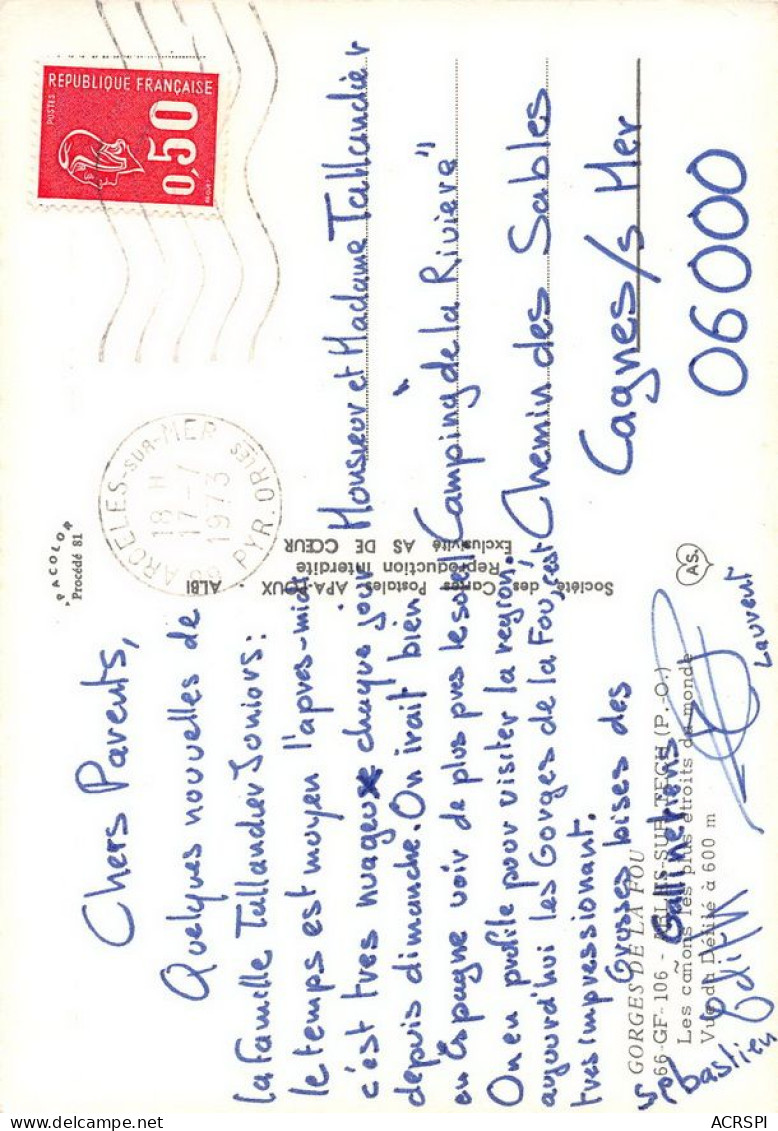 Chers Parents,
Quelques nouvelles de
la famille Tallandier Juniors :
le temps est moyen l'apres-midi
c'est tres nuageux chaque jour
depuis dimanche. On irait bien
en Espagne voir de plus pres le soleil
On en profite pour visiter la region.
aujourd'hui les Gorges de la Fou, c'est
tres impressionant.
Grosses bises des
Gallinetiens
Sébastien Edith Laurent
GORGES DE LA FOU
66-GF-106 - ARLES-SUR-TECH (P.-O.)
Les cañons les plus étroits du monde
Vue du Défilé à 600 m
PACOLOR
Procédé 81
Société des Cartes Postales APA-POUX - ALBI
Reproduction Interdite
Exclusivité AS DE CŒUR
AS.
REPUBLIQUE FRANÇAISE
POSTES
0,50
BEQUET
ARGELES-SUR-MER
18 H
17-7
1973
PYR. ORLES
Monsieur et Madame Tallandier
"Camping de la Riviera"
Chemin des Sables
Cagnes/s Mer
06000
ACRSPI